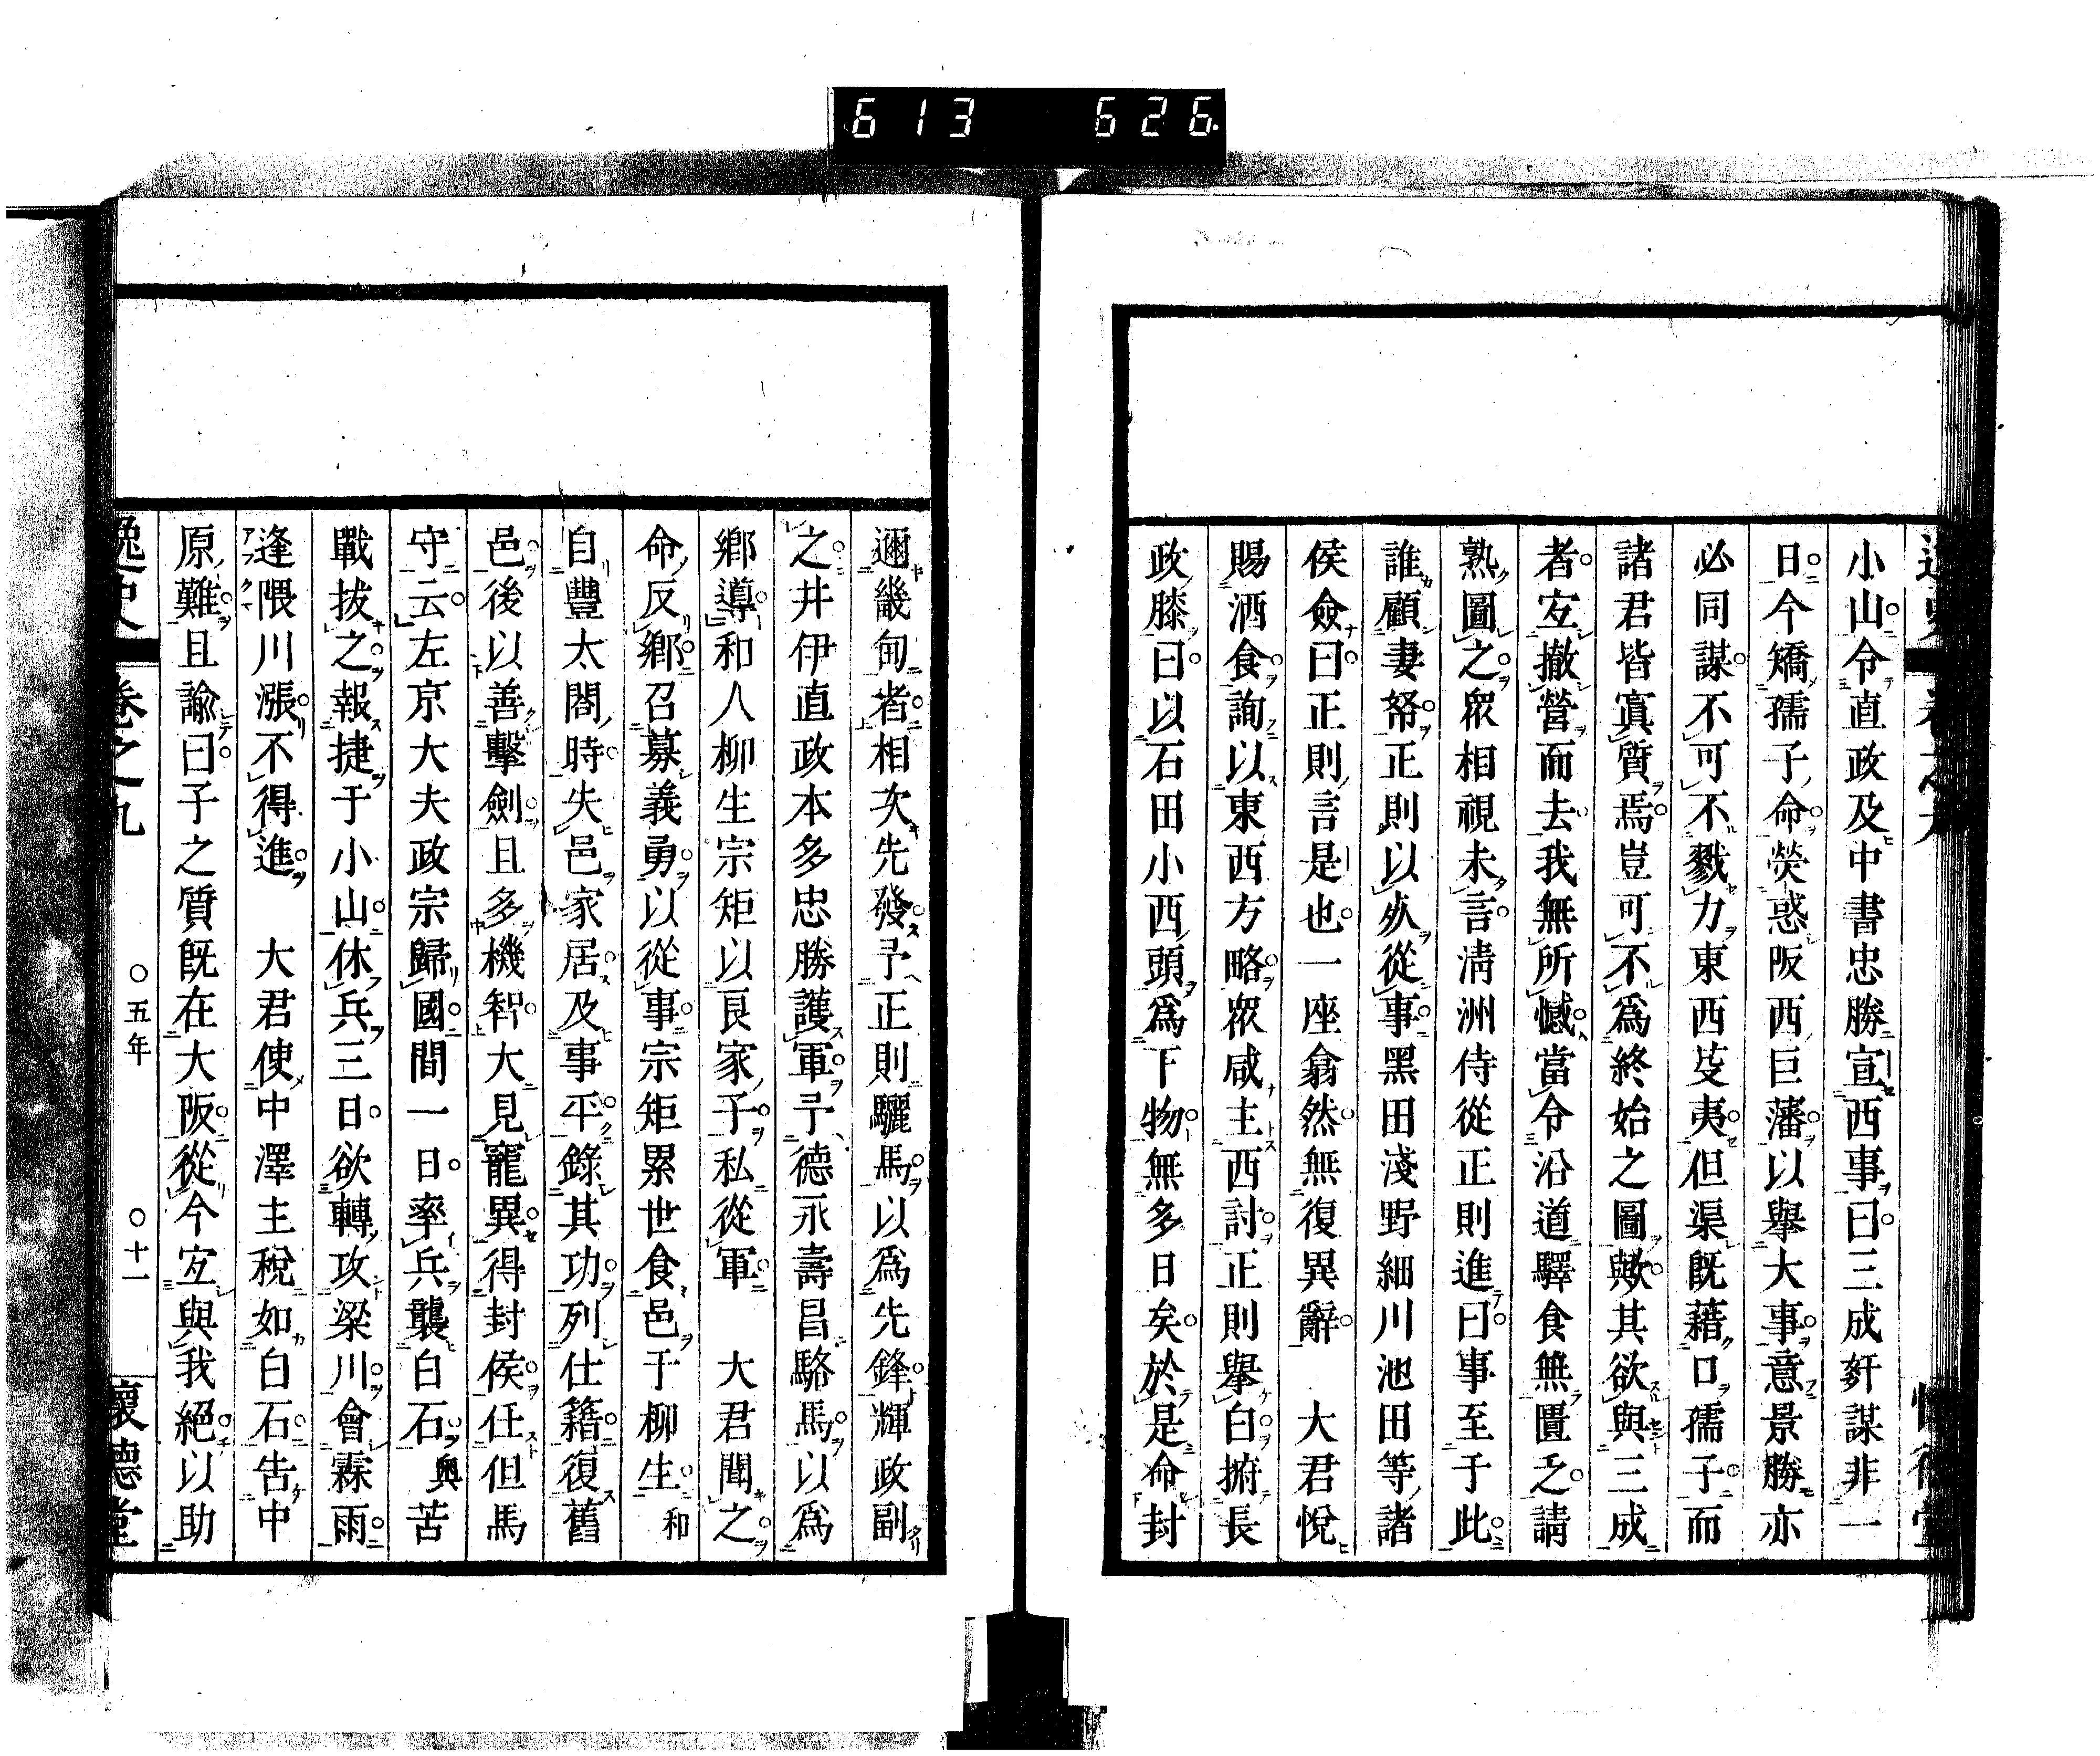 613 626
小山令直政及中書忠勝宣西事曰三成姧謀非一
日今矯孺子命熒惑阪西巨藩以擧大事意景勝亦
必同謀不可不戮力東西芟夷但渠既藉口孺子而
諸君皆寘質焉豈可不爲終始之圖歟其欲與三成
者宐撤營而去我無所憾當令沿道驛食無匱乏請
熟圖之衆相視未言淸洲侍從正則進曰事至于此
誰顧妻帑正則以死從事黑田淺野細川池田等諸
侯僉曰正則言是也一座翕然無復異辭　大君悅
賜酒食詢以東西方略衆咸主西討正則擧白捬長
政膝曰以石田小西頭爲下物無多日矣於是命封
邇畿甸者相次先發予正則驪馬以爲先鋒輝政副
之井伊直政本多忠勝護軍予德永壽昌騟馬以爲
鄕導和人柳生宗矩以良家子私從軍　大君聞之
命反鄕召募義勇以從事宗矩累世食邑于柳生和
自豐太閤時失邑家居及事平錄其功列仕籍復舊
邑後以善擊劍且多機智大見寵異得封侯任但馬
守云左京大夫政宗歸國間一日率兵襲白石奧苦
戰拔之報捷于小山休兵三日欲轉攻梁川會霖雨
逢隈川漲不得進　大君使中澤主稅如白石吿中
原難且諭曰子之質既在大阪從今宐與我絕以助
逸史　卷之九　○五年　○十一　懷德堂